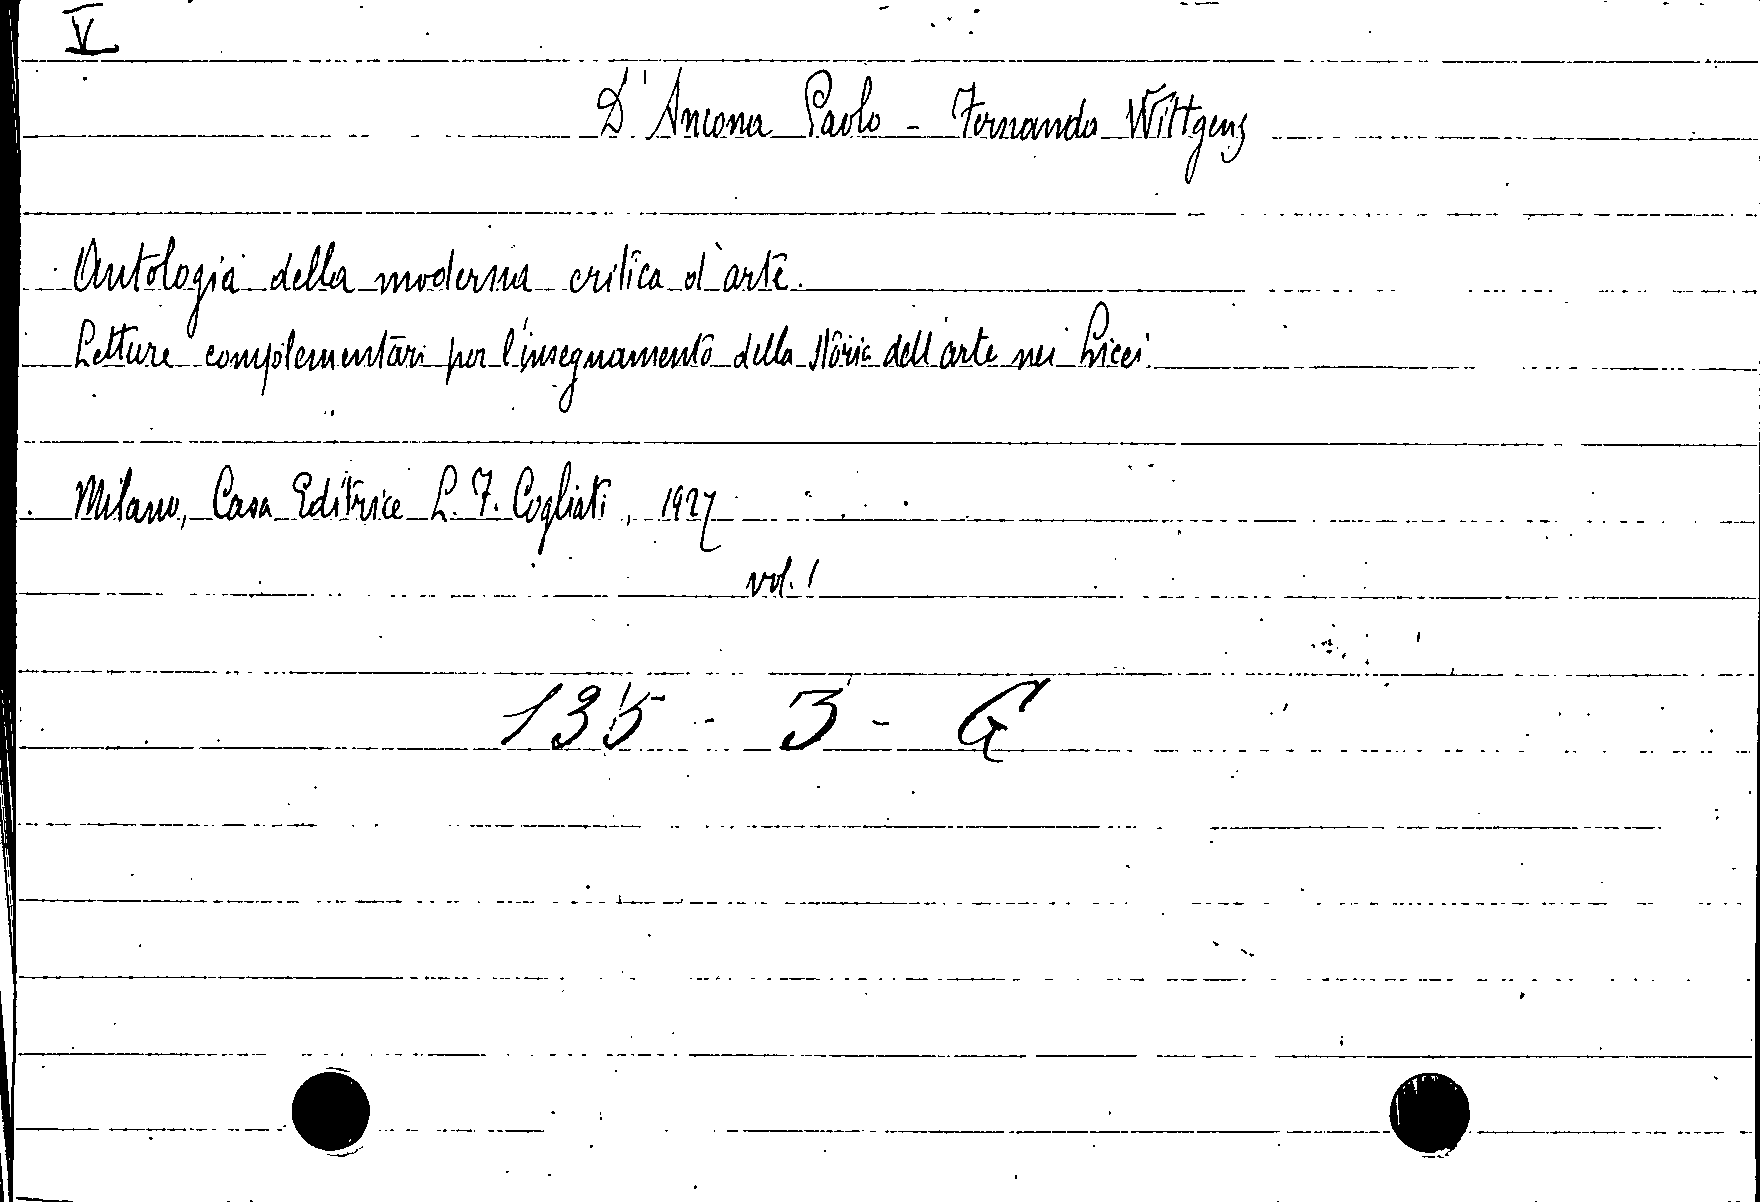 V
D'Ancona Paolo - Fernanda Wittgens
Antologia della moderna critica d'arte.
Letture complementari per l'insegnamento della storia dell'arte nei Licei.
Milano, Casa Editrice L. F. Cogliati, 1927
vol. 1
135 - 3 - G